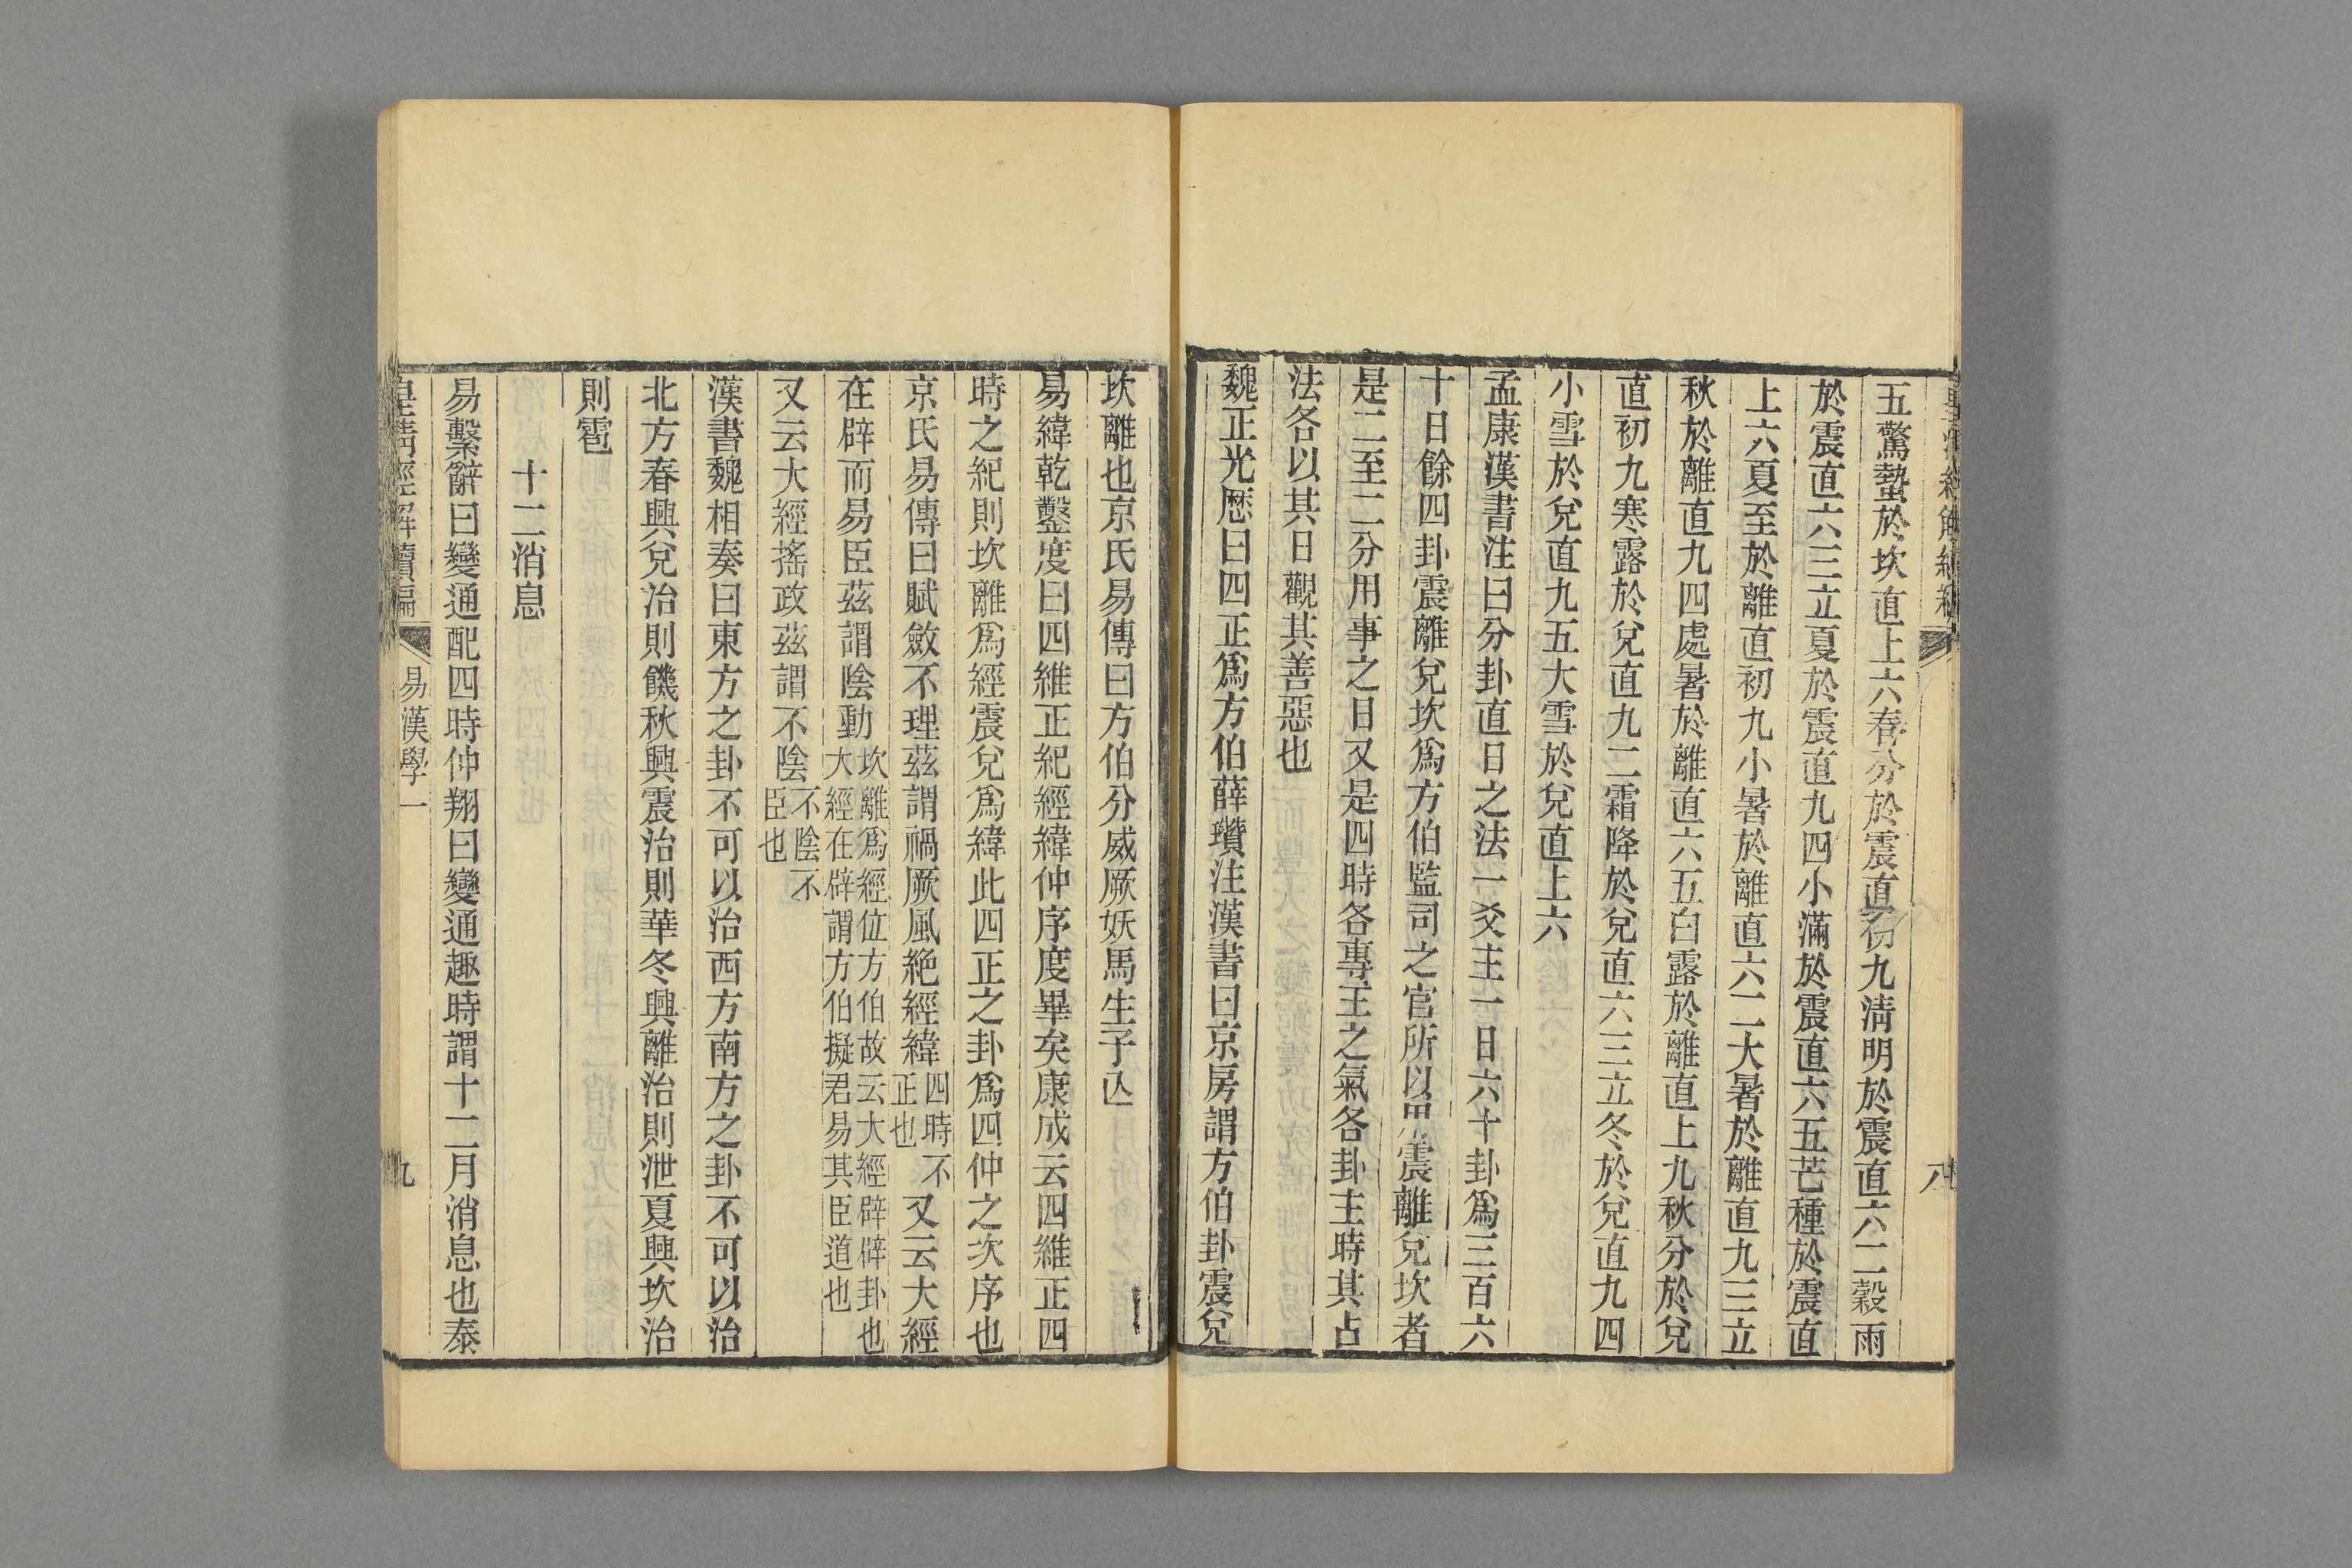 五驚蟄於坎直上六春分於震直初九清明於震直六二穀雨
於震直六三立夏於震直九四小滿於震直六五芒種於震直
上六夏至於離直初九小暑於離直六二大暑於離直九三立
秋於離直九四處暑於離直六五白露於離直上九秋分於兌
直初九寒露於兌直九二霜降於兌直六三立冬於兌直九四
小雪於兌直九五大雪於兌直上六
孟康漢書注曰分卦直日之法一爻主一日六十卦爲三百六
十日餘四卦震離兌坎爲方伯監司之官所以用震離兌坎者
是二至二分用事之日又是四時各專王之氣各卦主時其占
法各以其日觀其善惡也
魏正光歷曰四正爲方伯薛瓚注漢書曰京房謂方伯卦震兌
坎離也京氏易傳曰方伯分威厥妖馬生子亾
易緯乾鑿度曰四維正紀經緯仲序度畢矣康成云四維正四
時之紀則坎離爲經震兌爲緯此四正之卦爲四仲之次序也
京氏易傳曰賦斂不理茲謂禍厥風絶經緯四時不正也又云大經
在辟而易臣茲謂陰動坎離爲經位方伯故云大經辟辟卦也大經在辟謂方伯擬君易其臣道也
又云大經搖政茲謂不陰不陰不臣也
漢書魏相奏曰東方之卦不可以治西方南方之卦不可以治
北方春興兌治則饑秋興震治則華冬興離治則泄夏興坎治
則雹
十二消息
易繫辭曰變通配四時仲翔曰變通趣時謂十二月消息也泰
皇清經解續編
易漢學一
九